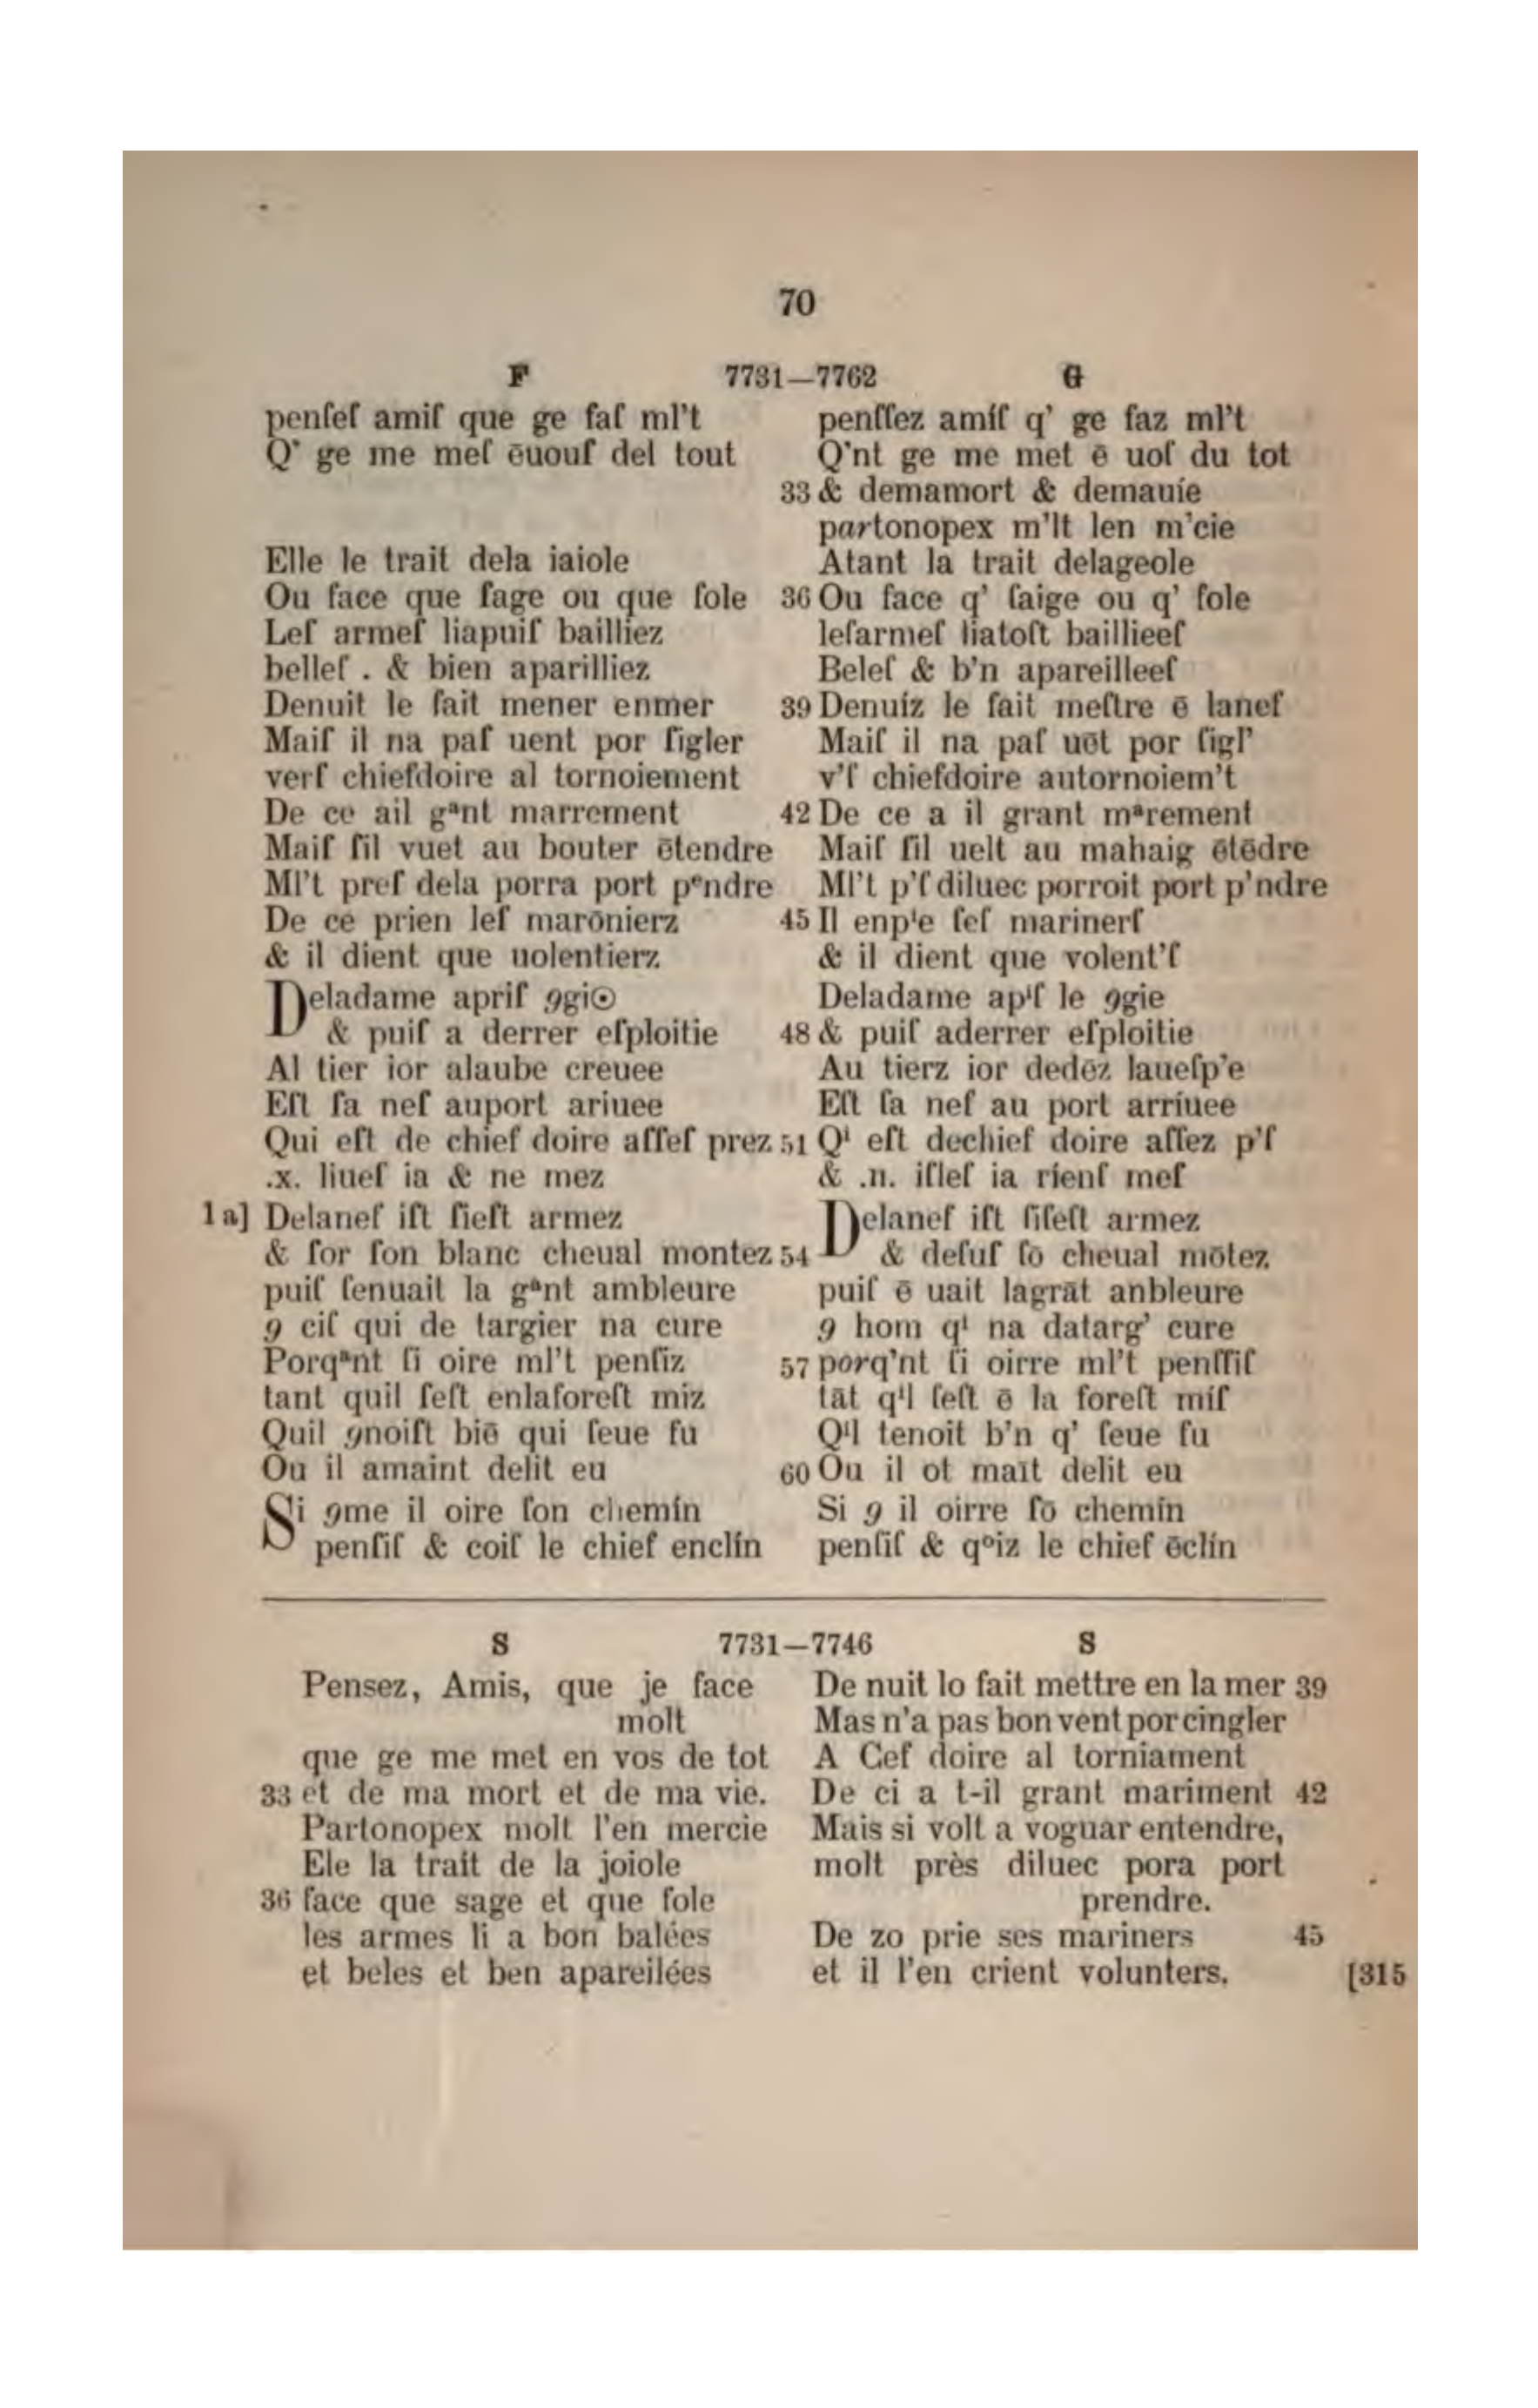 70
F 7731—7762 G
penſeſ amiſ que ge faſ ml't
Q' ge me meſ ēuouſ del tout
Elle le trait dela iaiole
Ou face que ſage ou que fole
Leſ armeſ liapuiſ bailliez
belleſ . & bien aparilliez
Denuit le fait mener enmer
Maiſ il na paſ uent por ſigler
verſ chiefdoire al tornoiement
De ce ail gᵃnt marrement
Maiſ ſil vuet au bouter ētendre
Ml't preſ dela porra port pᵉndre
De ce prien leſ marōnierz
& il dient que uolentierz
Deladame apriſ 9gi⊙
& puiſ a derrer eſploitie
Al tier ior alaube creuee
Eſt ſa nef auport ariuee
Qui eſt de chief doire aſſeſ prez
.x. liueſ ia & ne mez
1 a] Delanef iſt ſieſt armez
& ſor ſon blanc cheual montez
puiſ ſenuait la gᵃnt ambleure
9 ciſ qui de targier na cure
Porqᵃnt ſi oire ml't penſiz
tant quil ſeſt enlaforeſt miz
Quil 9noiſt biē qui ſeue fu
Ou il amaint delit eu
Si 9me il oire ſon chemín
penſiſ & coiſ le chief enclín
penſſez amíſ q' ge faz ml't
Q'nt ge me met ē uoſ du tot
33 & demamort & demauíe
partonopex m'lt len m'cie
Atant la trait delageole
36 Ou face q' ſaige ou q' fole
leſarmeſ liatoſt baillieeſ
Beleſ & b'n apareilleeſ
39 Denuíz le fait meſtre ē lanef
Maiſ il na paſ uēt por ſigl'
v'ſ chiefdoire autornoiem't
42 De ce a il grant mᵃrement
Maiſ ſil uelt au mahaig ētēdre
Ml't p'ſ diluec porroit port p'ndre
45 Il enpⁱe ſeſ marinerſ
& il dient que volent'ſ
Deladame apⁱſ le 9gie
48 & puiſ aderrer eſploitie
Au tierz ior dedēz laueſp'e
Eſt ſa nef au port arríuee
51 Qⁱ eſt dechief doire aſſez p'ſ
& .n. iſleſ ia ríenſ meſ
Delanef iſt ſiſeſt armez
54 & deſuſ ſō cheual mōtez
puiſ ē uait lagrāt anbleure
9 hom qⁱ na datarg' cure
57 porq'nt ſi oirre ml't penſſiſ
tāt qⁱl ſeſt ē la foreſt míſ
Qⁱl tenoit b'n q' ſeue fu
60 Ou il ot maīt delit eu
Si 9 il oirre ſō chemín
penſiſ & qᵒiz le chief ēclín
S 7731—7746 S
Pensez, Amis, que je face
molt
que ge me met en vos de tot
33 et de ma mort et de ma vie.
Partonopex molt l'en mercie
Ele la trait de la joiole
36 face que sage et que fole
les armes li a bon balées
et beles et ben apareilées
De nuit lo fait mettre en la mer 39
Mas n'a pas bon vent por cingler
A Cef doire al torniament
De ci a t-il grant mariment 42
Mais si volt a voguar entendre,
molt près diluec pora port
prendre.
De zo prie ses mariners 45
et il l'en crient volunters. [315